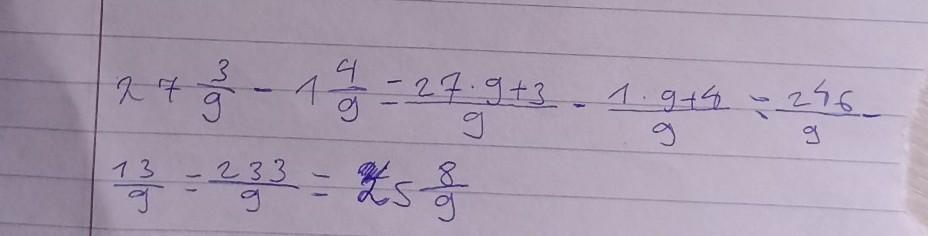 27 3/9 - 1 4/9 = 27·9+3/9 - 1·9+4/9 = 246/9 -
13/9 = 233/9 = 25 8/9